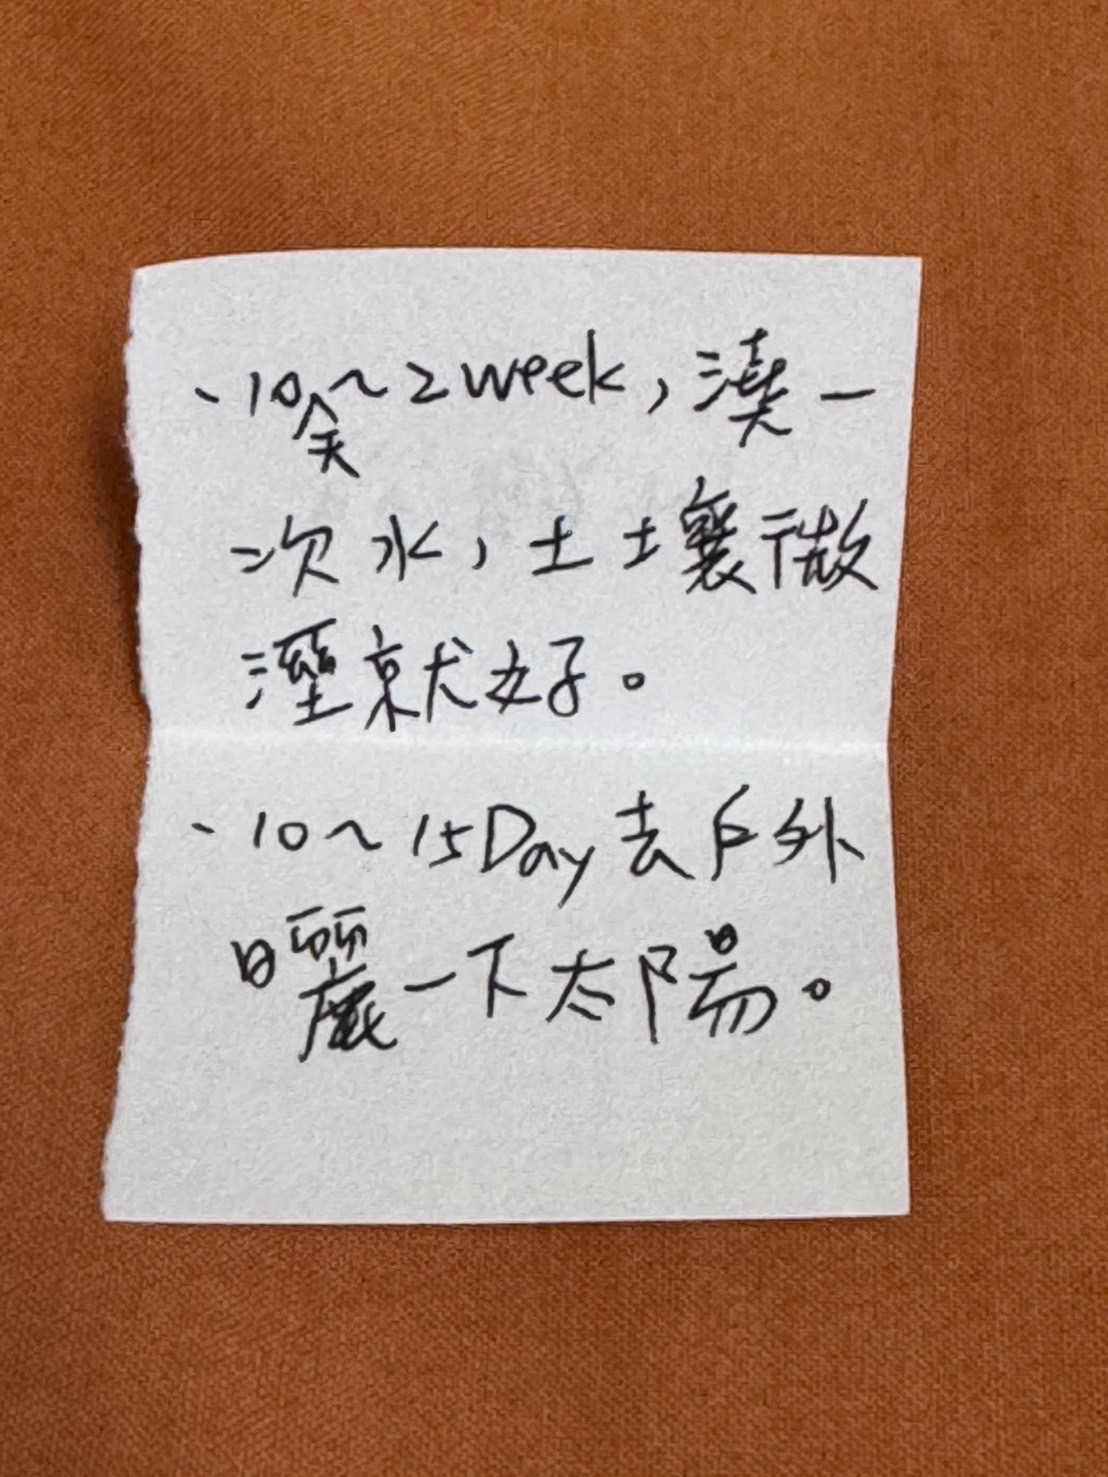 、10天~2week,澆一
次水,土土襄微
溼就好。
、10~15Day去戶外
曬一下太陽。